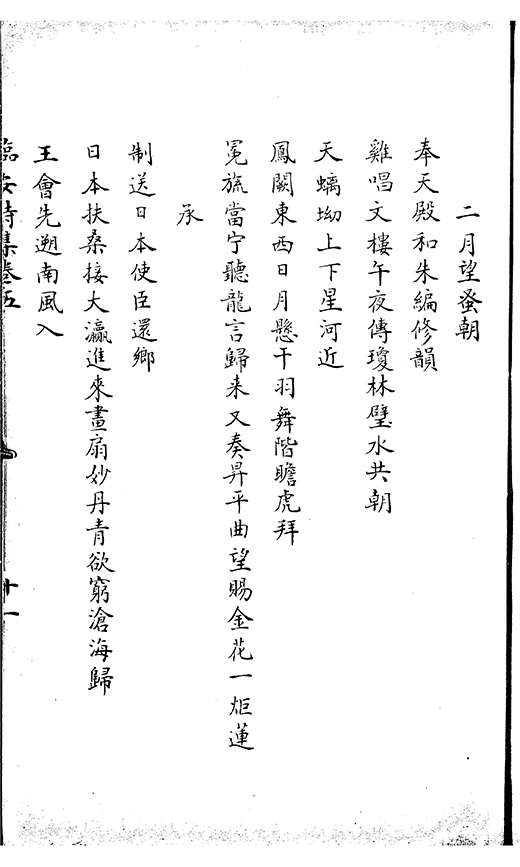 二月望蚤朝
奉天殿和朱編修韻
雞唱文樓午夜傳瓊林璧水共朝
天螭坳上下星河近
鳳闕東西日月懸干羽舞階瞻虎拜
冕旒當宁聽龍言歸来又奏昇平曲望賜金花一炬蓮
承
制送日本使臣還鄉
日本扶桑接大瀛進來畫扇妙丹青欲窮滄海歸
王會先遡南風入
臨安詩集卷五
十一